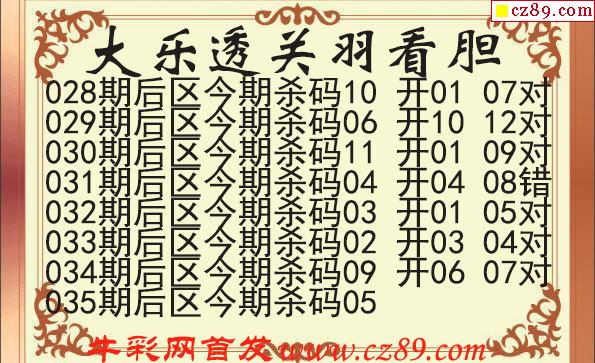 cz89.com
大乐透关羽看胆
028期后区今期杀码10 开01 07对
029期后区今期杀码06 开10 12对
030期后区今期杀码11 开01 09对
031期后区今期杀码04 开04 08错
032期后区今期杀码03 开01 05对
033期后区今期杀码02 开03 04对
034期后区今期杀码09 开06 07对
035期后区今期杀码05
牛彩网首发www.cz89.com